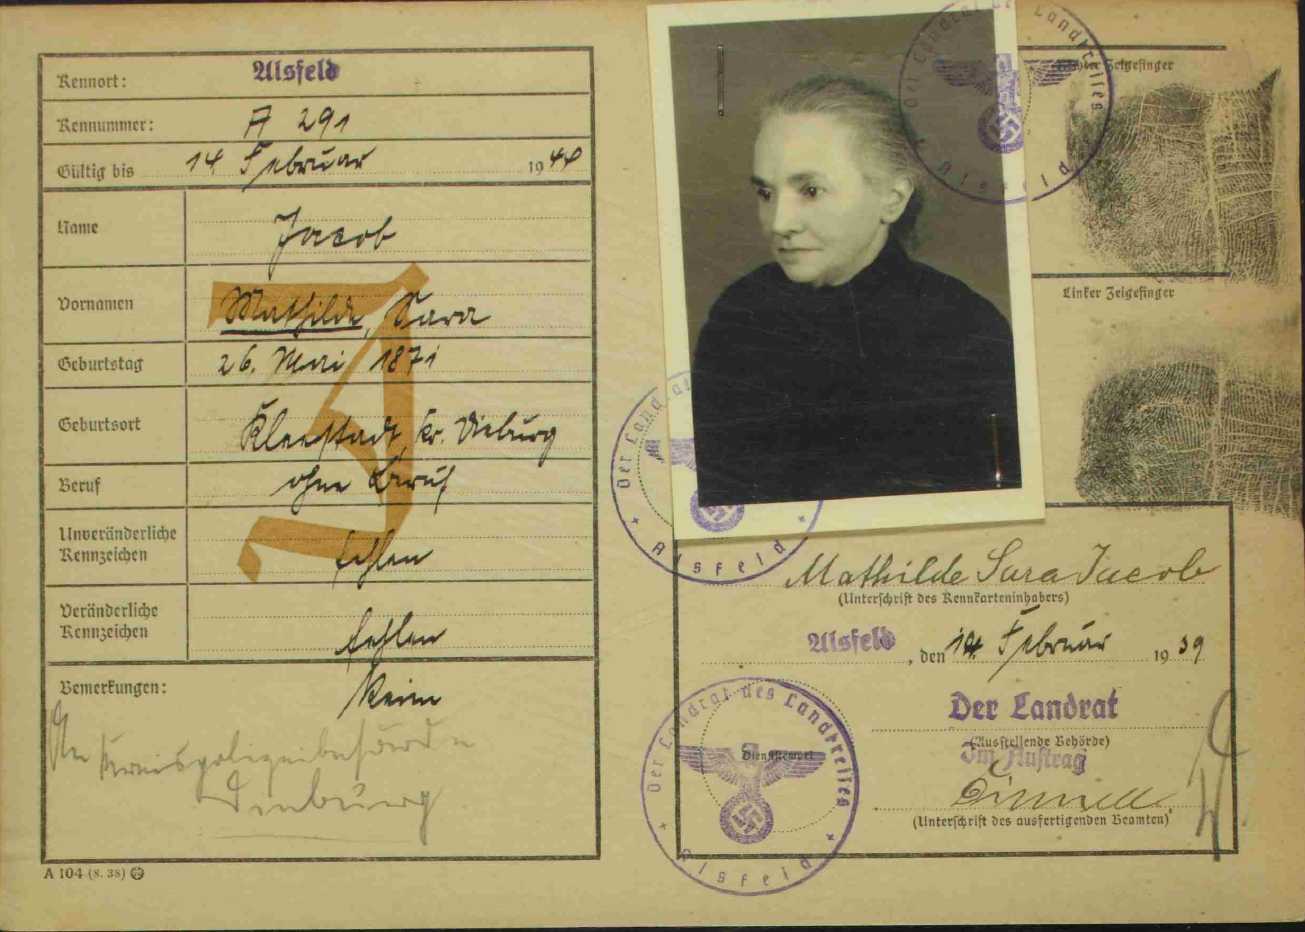 Kennort: Alsfeld
Kennummer: A 291
Gültig bis 14 Februar 1944
Name Jacob
Vornamen Mathilde, Sara
Geburtstag 26. Mai 1871
Geburtsort Kleestadt, Kr. Dieburg
Beruf ohne Beruf
Unveränderliche
Kennzeichen fehlen
Veränderliche
Kennzeichen fehlen
Bemerkungen: Keine
An Kreispolizeibehörde
Dieburg
A 104 (8. 38)
J
Der Landrat des Landkreises
Alsfeld
Der Landrat
Alsfeld
Zeigefinger
Linker Zeigefinger
Mathilde Sara Jacob
(Unterschrift des Kennkarteninhabers)
Alsfeld, den 14. Februar 1939
Der Landrat
(Ausstellende Behörde)
Im Auftrag
(Unterschrift des ausfertigenden Beamten)
Der Landrat des Landkreises
Dienststempel
Alsfeld